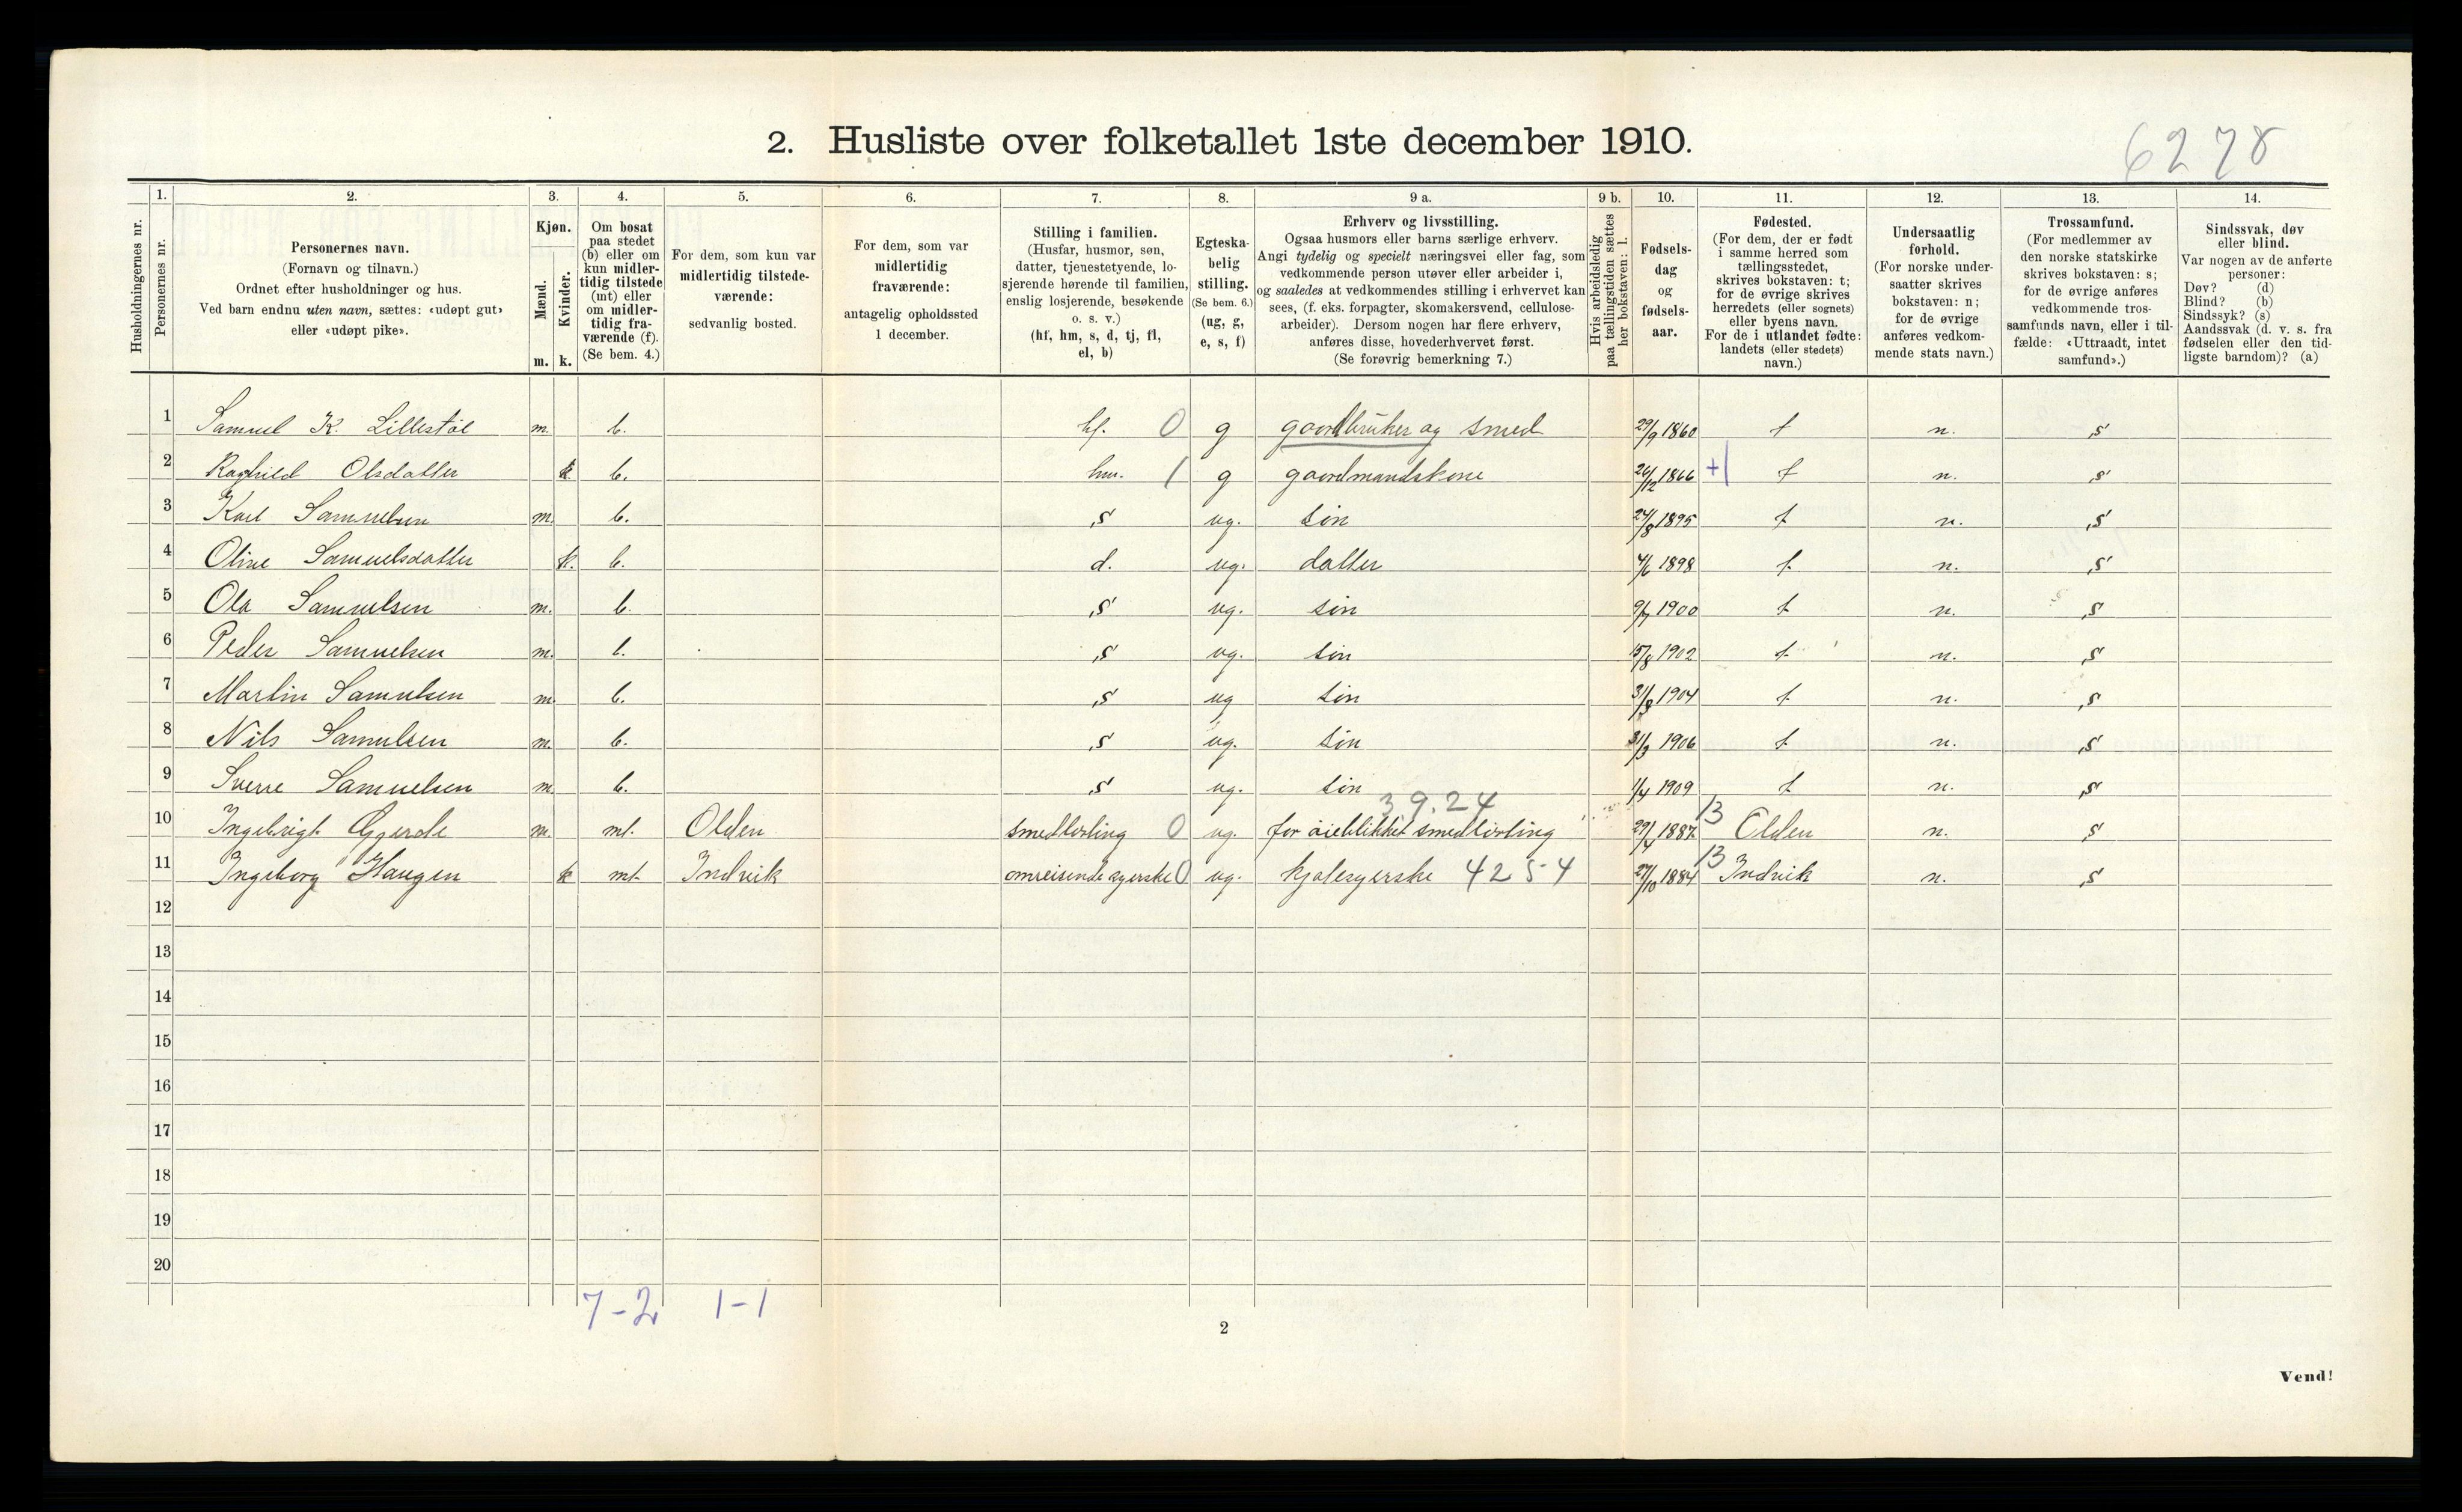 2. Husliste over folketallet 1ste december 1910.
6278
1. 2. 3. 4. 5. 6. 7. 8. 9 a. 9 b. 10. 11. 12. 13. 14.
Husholdningernes nr.
Personernes nr.
Personernes navn.
(Fornavn og tilnavn.)
Ordnet efter husholdninger og hus.
Ved barn endnu uten navn, sættes: «udøpt gut»
eller «udøpt pike».
Kjøn.
Mænd.
Kvinder.
m. k.
Om bosat
paa stedet
(b) eller om
kun midler-
tidig tilstede
(mt) eller
om midler-
tidig fra-
værende (f).
(Se bem. 4.)
For dem, som kun var
midlertidig tilstede-
værende:
sedvanlig bosted.
For dem, som var
midlertidig
fraværende:
antagelig opholdssted
1 december.
Stilling i familien.
(Husfar, husmor, søn,
datter, tjenestetyende, lo-
sjerende hørende til familien,
enslig losjerende, besøkende
o. s. v.)
(hf, hm, s, d, tj, fl,
el, b)
Egteska-
belig
stilling.
(Se bem. 6.)
(ug, g,
e, s, f)
Erhverv og livsstilling.
Ogsaa husmors eller barns særlige erhverv.
Angi tydelig og specielt næringsvei eller fag, som
vedkommende person utøver eller arbeider i,
og saaledes at vedkommendes stilling i erhvervet kan
sees, (f. eks. forpagter, skomakersvend, cellulose-
arbeider). Dersom nogen har flere erhverv,
anføres disse, hovederhvervet først.
(Se forøvrig bemerkning 7.)
Hvis arbeidsledig
paa tællingstiden sættes
her bokstaven: l.
Fødsels-
dag
og
fødsels-
aar.
Fødested.
(For dem, der er født
i samme herred som
tællingsstedet,
skrives bokstaven: t;
for de øvrige skrives
herredets (eller sognets)
eller byens navn.
For de i utlandet fødte:
landets (eller stedets)
navn.)
Undersaatlig
forhold.
(For norske under-
saatter skrives
bokstaven: n;
for de øvrige
anføres vedkom-
mende stats navn.)
Trossamfund.
(For medlemmer av
den norske statskirke
skrives bokstaven: s;
for de øvrige anføres
vedkommende tros-
samfunds navn, eller i til-
fælde: «Uttraadt, intet
samfund».)
Sindssvak, døv
eller blind.
Var nogen av de anførte
personer:
Døv? (d)
Blind? (b)
Sindssyk? (s)
Aandssvak (d. v. s. fra
fødselen eller den tid-
ligste barndom)? (a)
1 Samuel K. Lillestøl m. b. hf. 0 g gaardbruker og smed 29/9 1860 t n. s
2 Raghild Olsdatter k b. hm. 1 g gaardmandskone 26/12 1866 +1 t n. s
3 Karl Samuelsen m. b. s ug. søn 24/8 1895 t n. s
4 Oline Samuelsdatter k. b. d. ug. datter 4/6 1898 t n. s
5 Ola Samuelsen m. b. s ug. søn 1900 t n. s
6 Peder Samuelsen m. b. s ug. søn 15/8 1902 t n. s
7 Martin Samulsen m. b. s ug søn 31/8 1904 t n. s
8 Nils Samulsen m. b. s ug. søn 31/3 1906 t n. s
9 Sverre Samuelsen m b. s ug. søn 1/4 1909 t n. s
39.24
10 Ingebrigt Gjerde m. mt. Olden smedlørling 0 ug. for øieblikket smedlørling 29/4 1887 13 Olden n. s
11 Ingeborg Haugen k mt. Indvik omreisende syerske 0 ug. kjolesyerske 4254 27/10 1884 13 Indvik n. s
12
13
14
15
16
17
18
19
20
7-2 1-1
2
Vend!